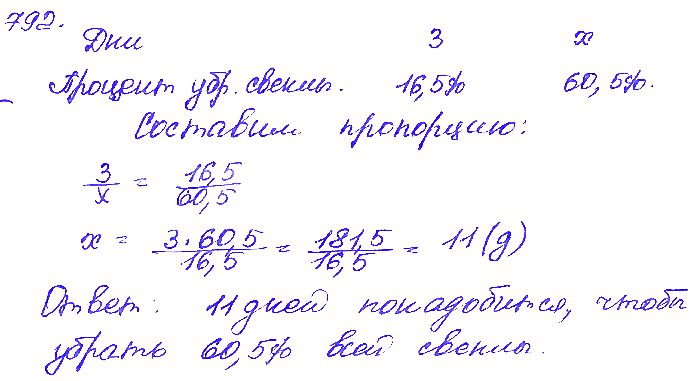 792.
Дни 3 x
Процент убр. свеклы. 16,5% 60,5%.
Составим пропорцию:
3/x = 16,5/60,5
x = 3·60,5/16,5 = 181,5/16,5 = 11 (д)
Ответ: 11 дней понадобится, чтобы
убрать 60,5% всей свеклы.